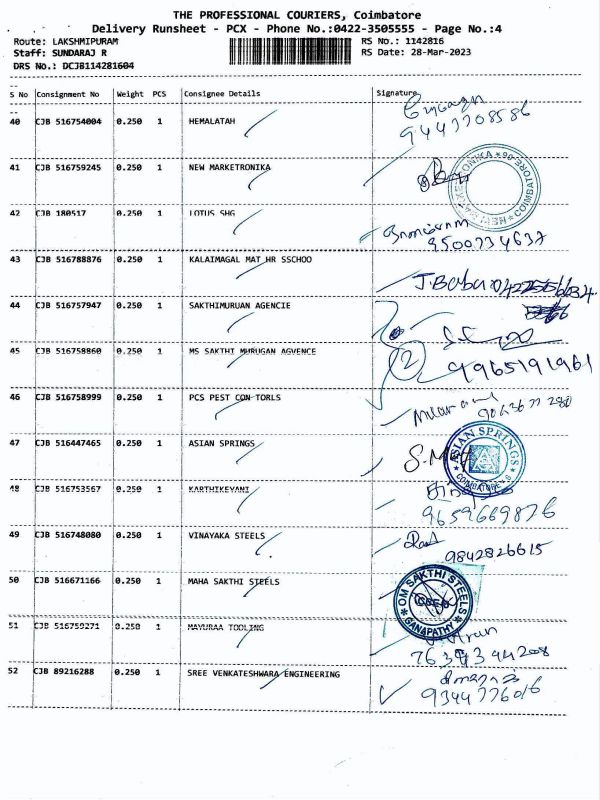 THE PROFESSIONAL COURIERS, Coimbatore
Delivery Runsheet - PCX - Phone No.:0422-3505555 - Page No.:4
Route: LAKSHMIPURAM RS No.: 1142816
Staff: SUNDARAJ R RS Date: 28-Mar-2023
DRS No.: DCJB114281604
S No Consignment No Weight PCS Consignee Details Signature
40 CJB 516754004 0.250 1 HEMALATAH
9443708586
41 CJB 516759245 0.250 1 NEW MARKETRONIKA
COIMBATORE
42 CJB 180517 0.250 1 LOTUS SHG
9500734637
43 CJB 516788876 0.250 1 KALAIMAGAL MAT HR SSCHOO
J. Babu
44 CJB 516757947 0.250 1 SAKTHIMURUAN AGENCIE
45 CJB 516758860 0.250 1 MS SAKTHI MURUGAN AGVENCE
2 9965191961
46 CJB 516758999 0.250 1 PCS PEST CON TORLS
47 CJB 516447465 0.250 1 ASIAN SPRINGS
ASIAN SPRINGS
48 CJB 516753567 0.250 1 KARTHIKEYANI
9659669876
49 CJB 516748080 0.250 1 VINAYAKA STEELS
9842826615
50 CJB 516671166 0.250 1 MAHA SAKTHI STEELS
OM SAKTHI STEELS
GANAPATHY
51 CJB 516759271 0.250 1 MAYURAA TOOLING
52 CJB 89216288 0.250 1 SREE VENKATESHWARA ENGINEERING
9344776016